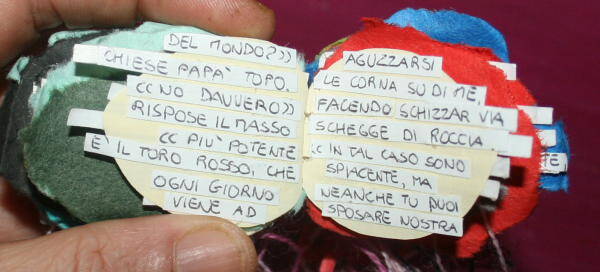 DEL MONDO?))
CHIESE PAPA' TOPO.
((NO DAVVERO))
RISPOSE IL MASSO
(( PIU' POTENTE
E' IL TORO ROSSO, CHE
OGNI GIORNO
VIENE AD
AGUZZARSI
LE CORNA SU DI ME,
FACENDO SCHIZZAR VIA
SCHEGGE DI ROCCIA
(( IN TAL CASO SONO
SPIACENTE, MA
NEANCHE TU PUOI
SPOSARE NOSTRA